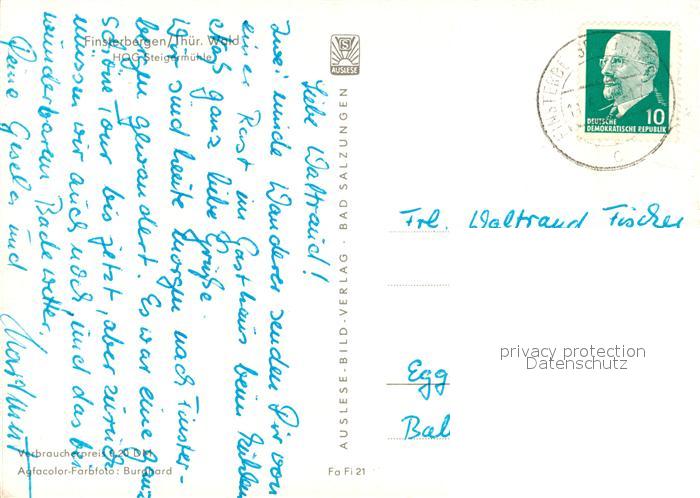 Finsterbergen/Thür. Wald
HOG Steigermühle
Liebe Waltraud!
Zwei müde Wanderer senden Dir von
einer Rast im Gasthaus beim kühlen
ganz liebe Grüße.
Wir sind heute morgen nach Finster-
bergen gewandert. Es war eine ganz
schöne Tour bis jetzt, aber zurück
müssen wir auch noch, und das bei
wunderbarem Badewetter.
Deine Gisela und
Hartmut
Verbraucherpreis 0,20 DM
Agfacolor-Farbfoto: Burghard
Fa Fi 21
AUSLESE
AUSLESE-BILD-VERLAG · BAD SALZUNGEN
10
DEUTSCHE
DEMOKRATISCHE REPUBLIK
FINSTERBE
c
Frl. Waltraud Fischer
Egg
Bal
privacy protection
Datenschutz